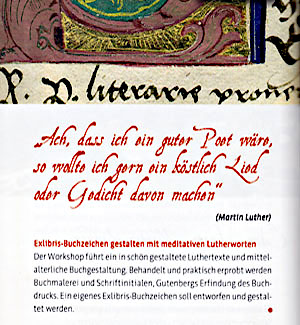 R. P. literarie
„Ach, dass ich ein guter Poet wäre,
so wollte ich gern ein köstlich Lied
oder Gedicht davon machen“
(Martin Luther)
Exlibris-Buchzeichen gestalten mit meditativen Lutherworten
Der Workshop führt ein in schön gestaltete Luthertexte und mittel-
alterliche Buchgestaltung. Behandelt und praktisch erprobt werden
Buchmalerei und Schriftinitialen, Gutenbergs Erfindung des Buch-
drucks. Ein eigenes Exlibris-Buchzeichen soll entworfen und gestal-
tet werden.